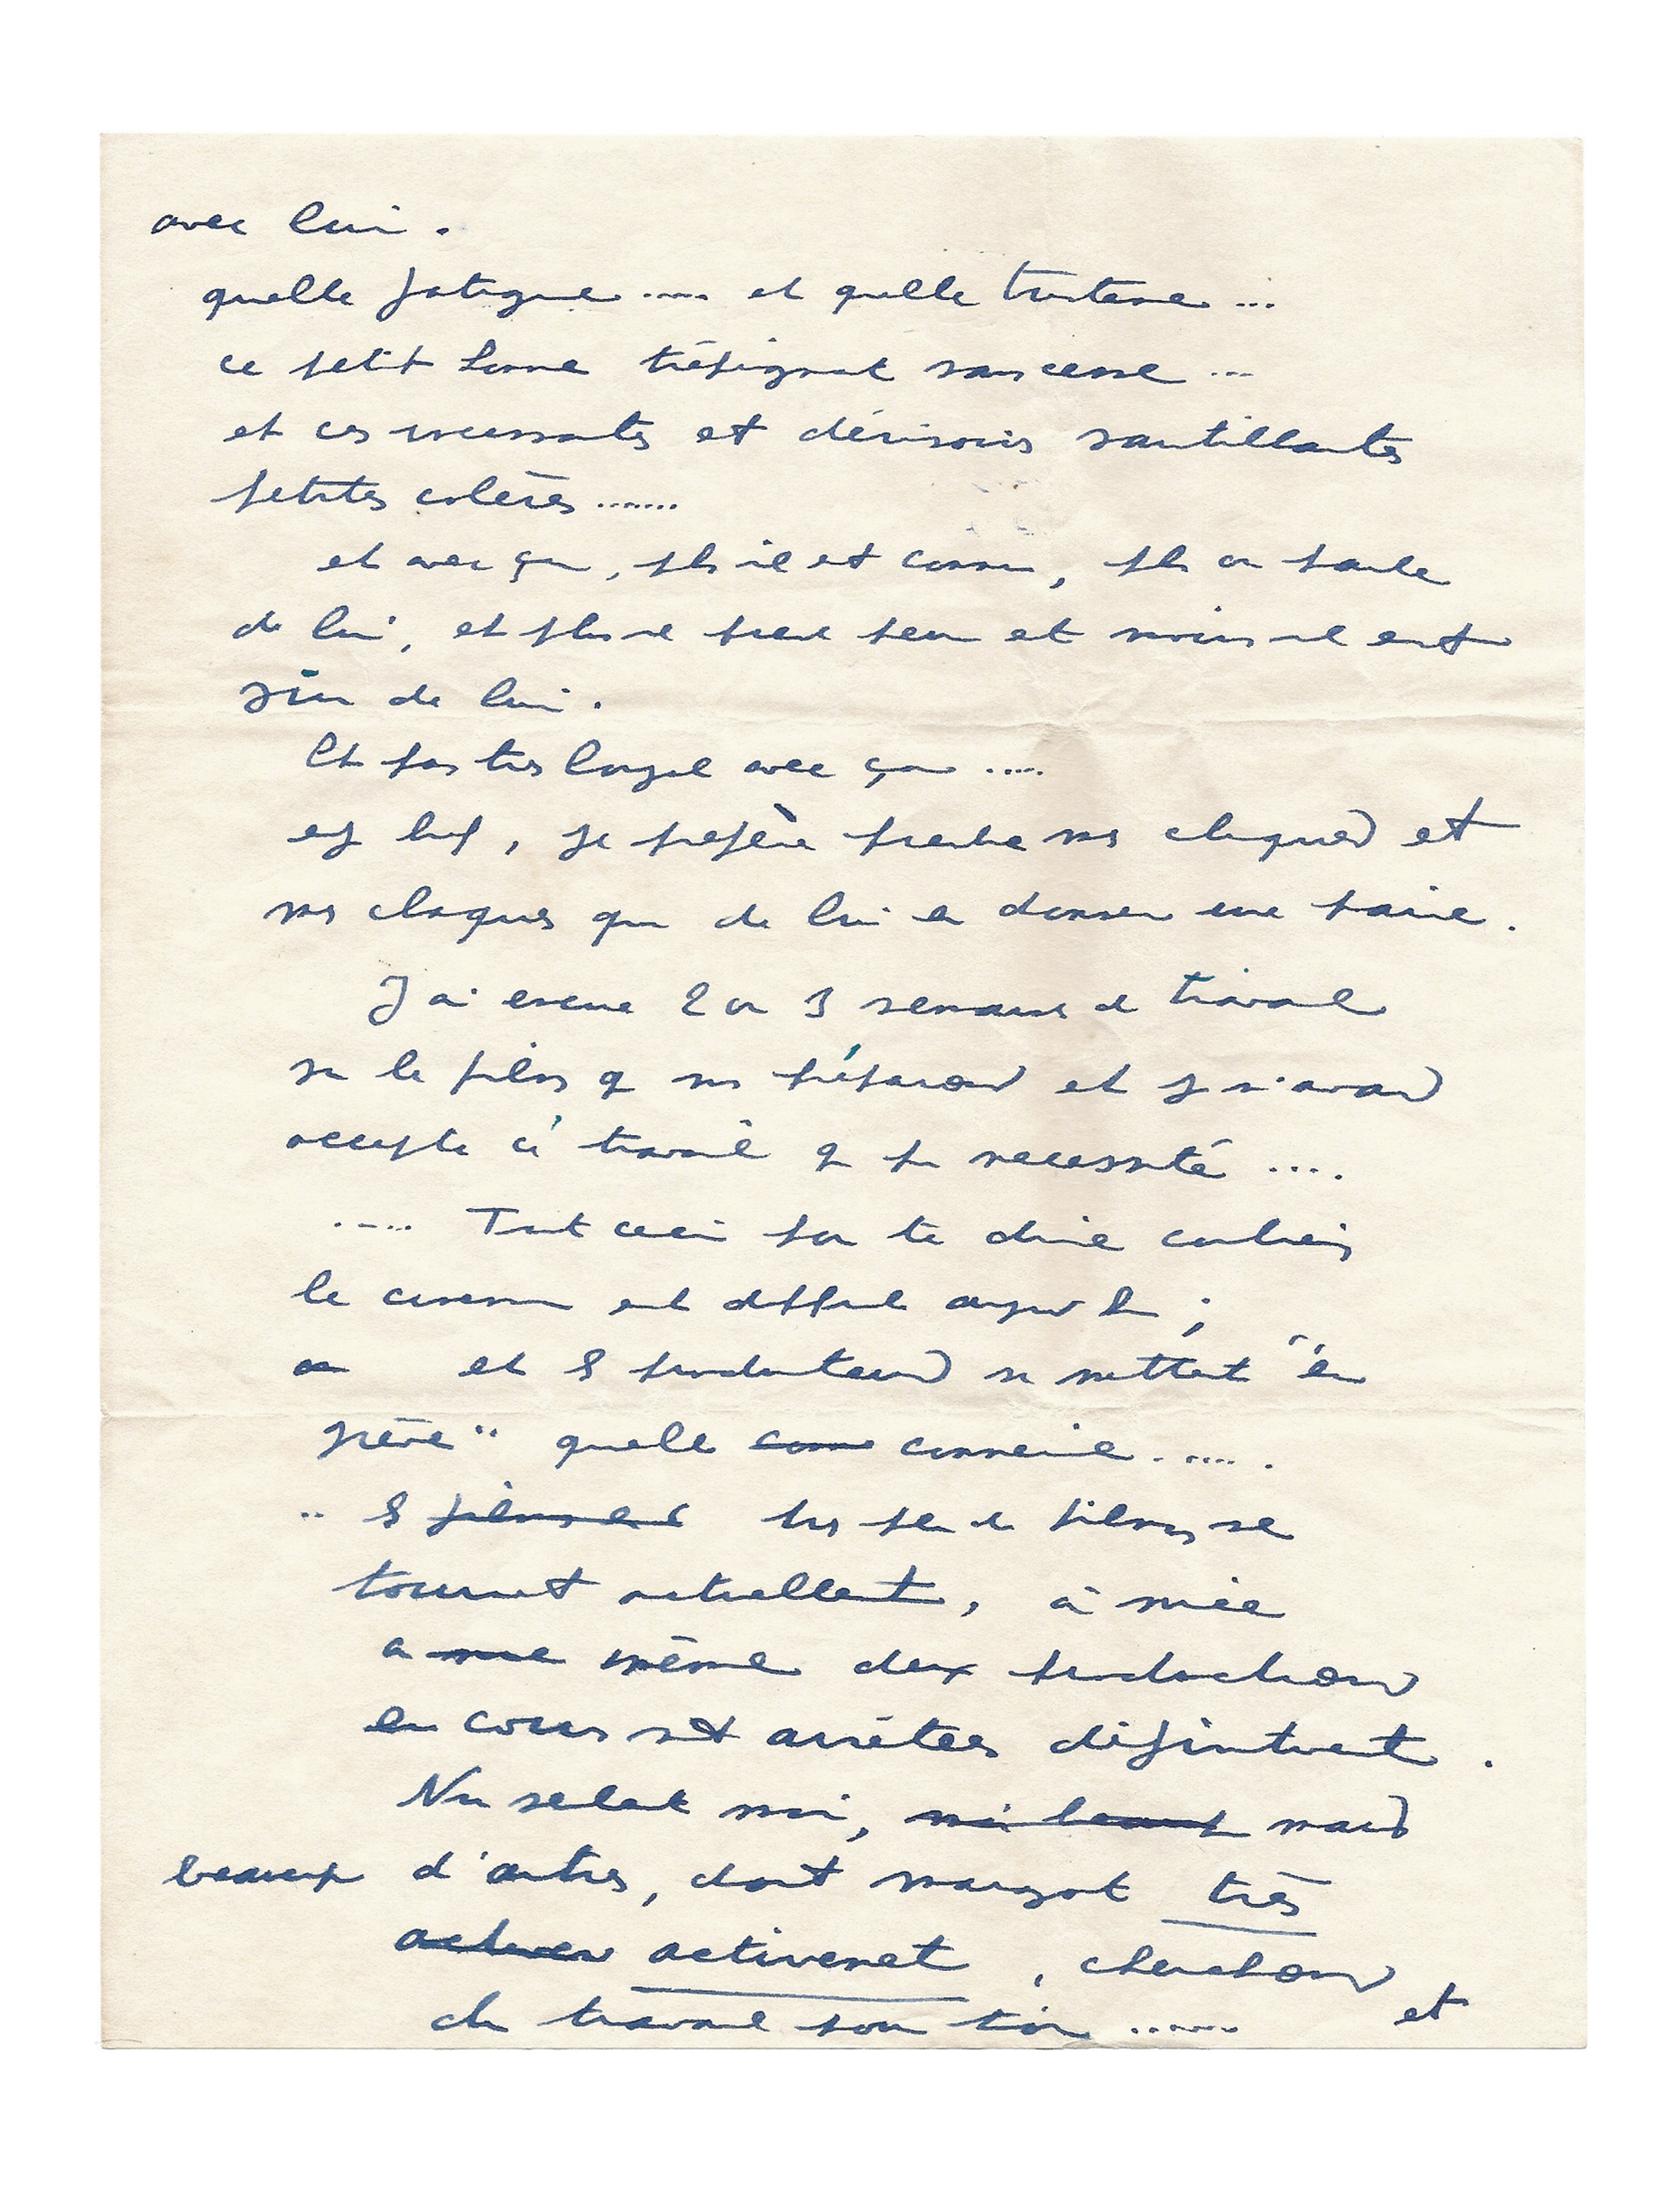 avec lui.
quelle fatigue ..... et quelle tristesse ...
ce petit homme trépignant sans cesse ...
et ces incessantes et dérisoires sautillantes
petites colères .......
et avec ça, plus il est connu, plus on parle
de lui, et plus il prend peur et moins il est
sûr de lui.
Et pas très loyal avec ça .....
, je préfère prendre mes cliques et
mes claques que de lui en donner une paire.
J'ai encore 2 ou 3 semaines de travail
sur le film que nous préparons et je n'avais
accepté ce travail que par nécessité ....
..... Tout ceci pour te dire combien
le cinéma est difficile aujourd'hui ;
et les producteurs se mettent "en
grève" quelle connerie ......
.. très peu de films se
tournent actuellement, à nice
même deux productions
en cours sont arrêtées définitivement.
Non seulement moi, mais
beaucoup d'autres, dont margot très
activement, cherchons
du travail pour toi ...... et